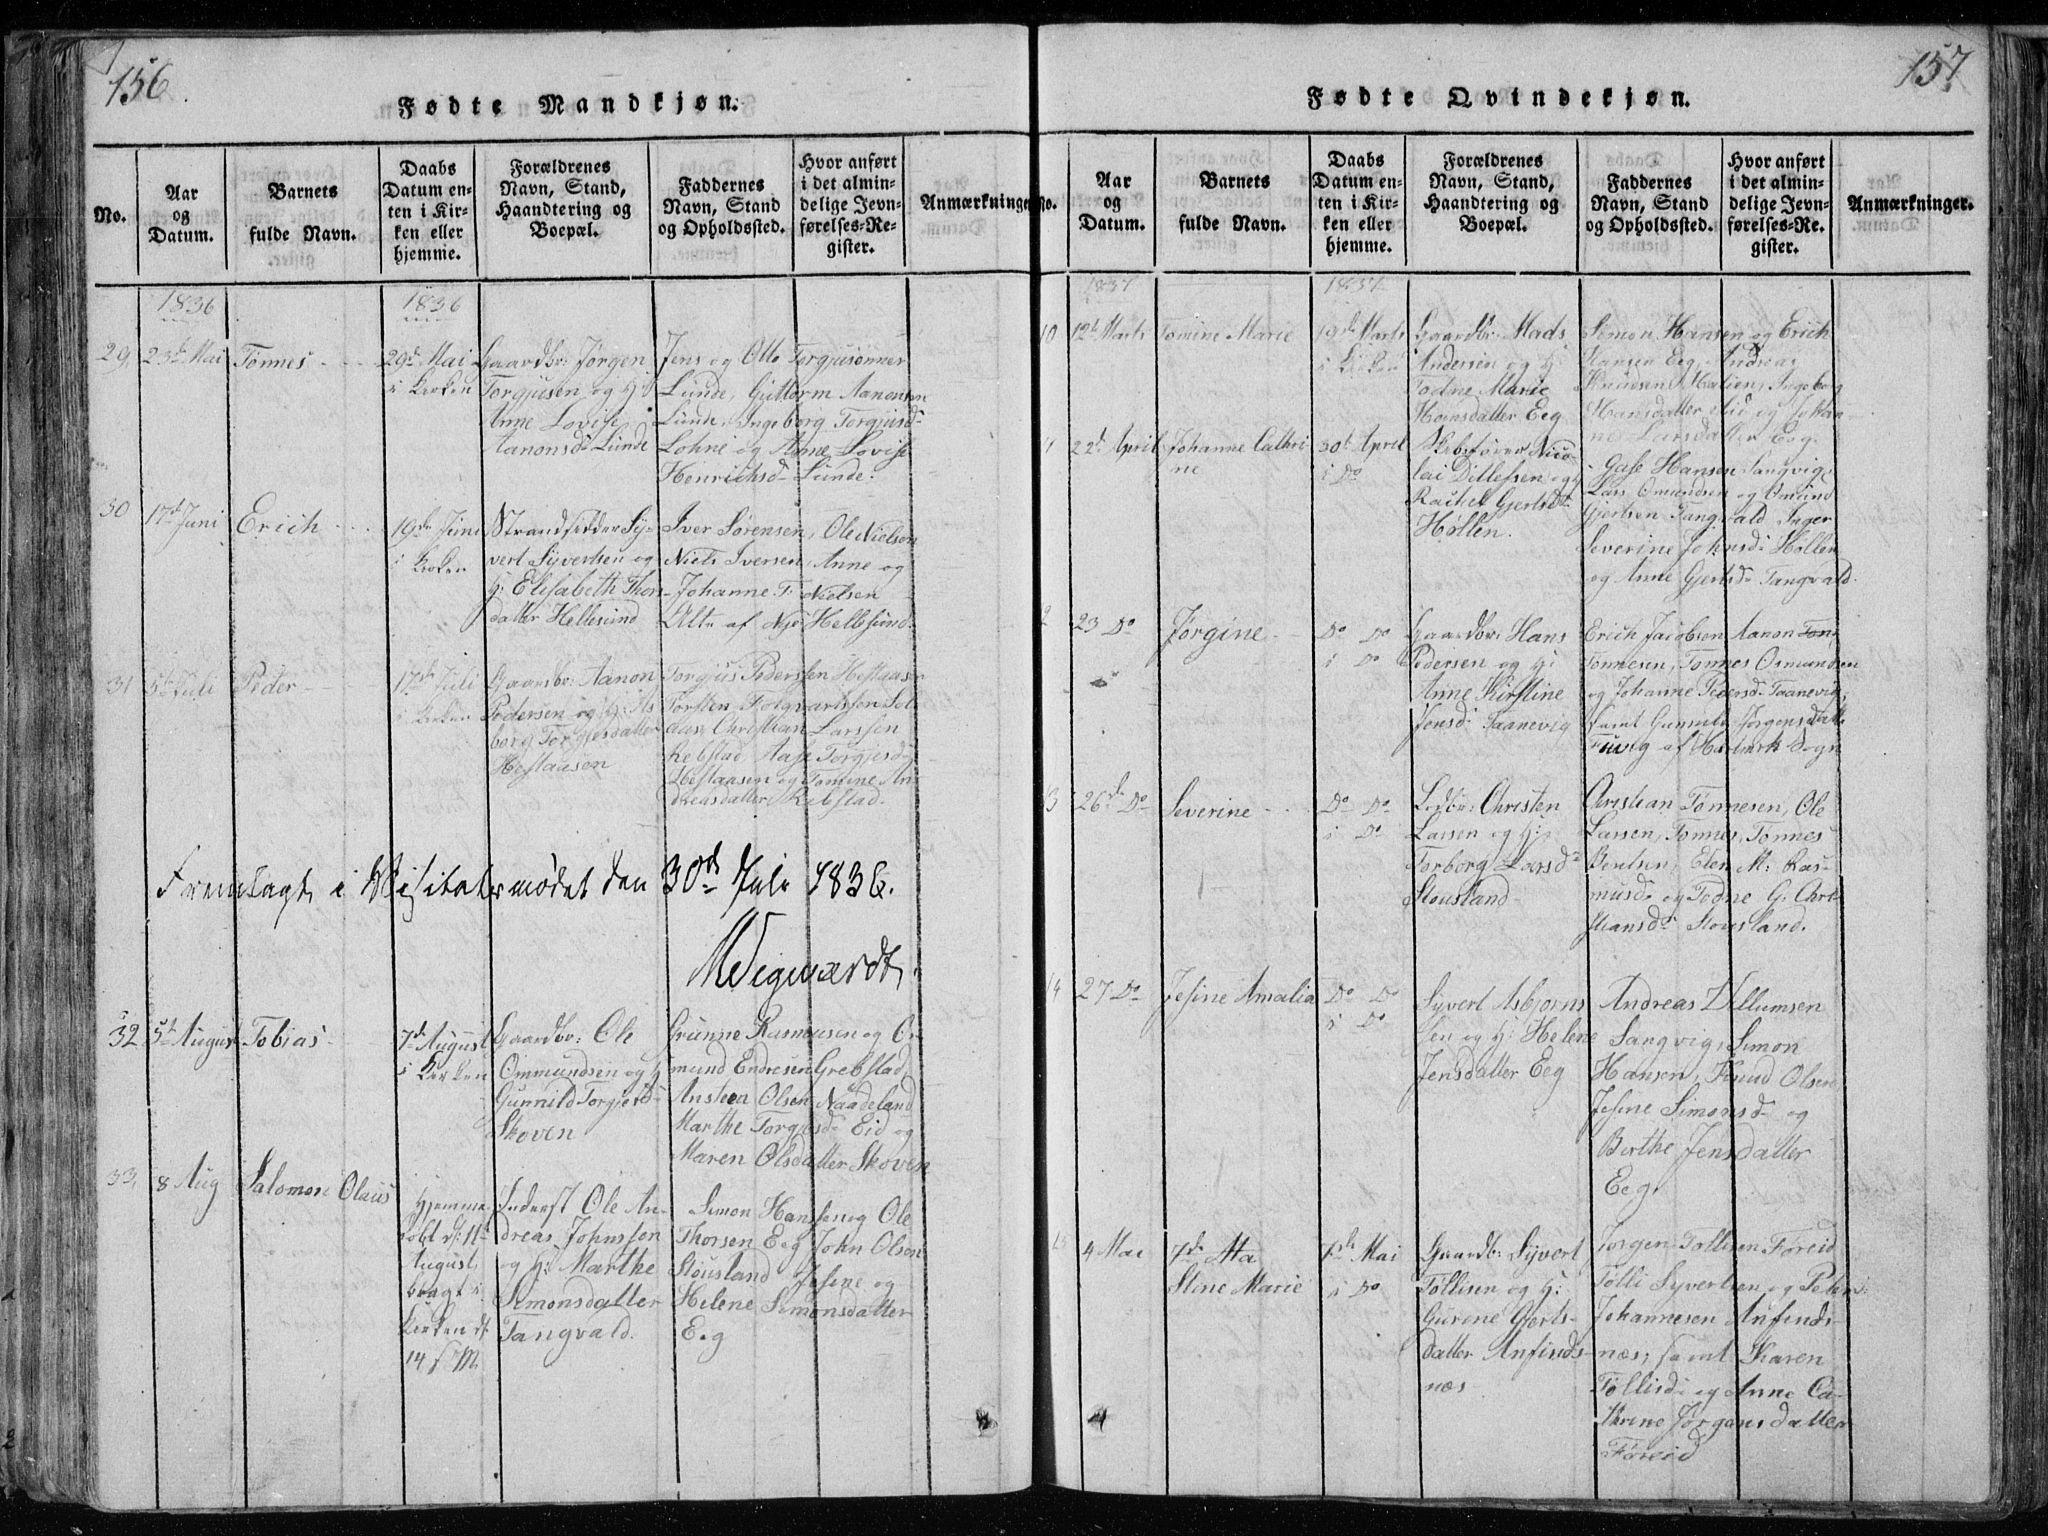 156
Fødte Mandkjøn.
No.
Aar
og
Datum.
Barnets
fulde Navn.
Daabs
Datum en-
ten i Kir-
ken eller
hjemme.
Forældrenes
Navn, Stand,
Haandtering og
Boepæl.
Faddernes
Navn, Stand
og Opholdssted.
Hvor anført
i det almin-
delige Jevn-
førelses-Re-
gister.
Anmærkninger
1836
1836
29
23d Mai
Tønnes
29d Mai
i Kirken
Gaardbr: Jørgen
Torgusen og H:
Anne Lovise
Aanonsd: Lunde
Jens og Otto Torgusønner
Lunde, Guttorm Aanonsen
Lunde, Ingeborg Torgusd-
Lohne og Anne Lovise
Henrichsd- Lunde.
30
17d Juni
Erich
19de Juni
i Kirken
Strandsidder Sy-
vert Syvertsen og
H: Elisabeth Thors-
datter Hellesund
Iver Sørensen, Ole Nielsen
Niels Iversen, Anne og
Johanne T: Nielsen
Alle af Nye Hellesund.
31
5t Juli
Peder
17de Juli
i Kirken
Gaardbr: Aanon
Pedersen og H: As
borg Torgjesdatter
Hestaasen
Torgus Pederssen Hestaasen
Torsten Folqvartssen Sol-
aas, Christian Larssen
Rebstad, Aase Torgjesd-
Hestaasen og Tomine An-
dreasdatter Rebstad.
Fremlagt i Visitatsmødet den 30d Juli 1836.
MWigwardt
32
5t August
Tobias
7d August
i Kirken
Gaardbr: Ole
Ommundsen og H
Gunnild Torgjersd-
Skoven
Grunne Rasmusen og O-
mund Endresen Grebstad,
Ansteen Olsen Naadeland
Marthe Torgjesd- Eid og
Maren Olsdatter Skoven
33,
8 Aug
Salomon Olaus
Hjemme
døbt d: 11t
August,
bragt i
Kirken d:
14 s. M.
Inderst Ole An-
dreas Johnssen
og H: Marthe
Simonsdatter
Tangvald.
Simon Hanssen og Ole
Thorsen Eeg John Olsen
Stousland Jesine og
Helene Simonsdatter
Eeg
157
Fødte Qvindekjøn.
No.
Aar
og
Datum.
Barnets
fulde Navn.
Daabs
Datum en-
ten i Kir-
ken eller
hjemme.
Forældrenes
Navn, Stand,
Haandtering og
Boepæl.
Faddernes
Navn, Stand
og Opholdssted.
Hvor anført
i det almin-
delige Jevn-
førelses-Re-
gister.
Anmærkninger.
1837
1837
10
12te Marts
Tomine Marie
19de Marts
i Kirken
Gaardbr: Mads
Andersen og H:
Todne Marie
Hansdatter Eeg
Simon Hansen og Erich
Hansen Eeg, Andreas
Knudsen Matien, Ingeborg
Hansdatter Eid og Johan-
ne Larsdatter Eeg.
22d April
Johanne Cathri
ne
30t April
i Do
Skibsfører Nico-
lai Ditlefsen og H
Rachel Gjertsd-
Høllen.
Gase Hansen Langvig,
Lars Omundsen og Omund
Gjertsen Tangvald Inger
Severine Johnsd- Høllen
og Anne Gjertsd- Tangvald.
2
23 Do
Jørgine
Do Do
i Do
Gaardbr: Hans
Pedersen og H:
Anne Kirstine
Jensd- Taanevig
Erich Jacobsen Aanon Ton-
Tonnesen, Tonnes Osmundsen
og Johanne Pedersd- Taanevig,
samt Gunnild Jørgensdatter
Fuvig af Halsmark Sogn
3
26de Do
Severine
Do Do
i Do
Ledbr: Christen
Larsen og H:
Torborg Larsd-
Stousland
Christian Tønnesen, Ole
Larsen, Tonnes, Tonnes
Bentsen, Elen M: Ras-
musd- og Todne G: Chri-
stiansd- Stousland.
14
27 Do
Jesine Amalia
Do Do
i Do
Syvert Asbjorns
sen og H: Helene
Jensdatter Eeg
Andreas Villumsen
Langvig, Simon
Hansen, Knud Olsen
Jesine Simonsd- og
Berthe Jensdatter
Eeg.
15
4 Mai
7de Ma
Stine Marie
7de Mai
i Do
Gaardb: Syvert
Tøllisen og H:
Gurine Gjerts-
datter Anfinds-
næs
Jørgen Tollisen Føreid
Tølli Syvertsen og Peter
Johannesen Anfinds-
næs, samt Karen
Tøllisd- og Anne Ca-
thrine Jørgensdatter
Føreid